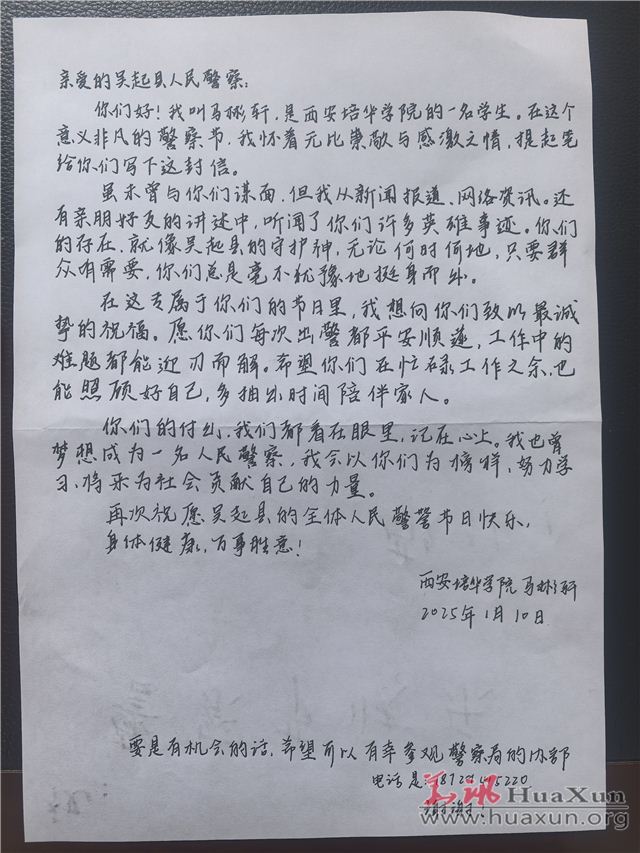 亲爱的吴起县人民警察：
你们好！我叫马彬轩，是西安培华学院的一名学生。在这个
意义非凡的警察节，我怀着无比崇敬与感激之情，提起笔
给你们写下这封信。
虽未曾与你们谋面，但我从新闻报道、网络资讯。还
有亲朋好友的讲述中，听闻了你们许多英雄事迹。你们
的存在，就像吴起县的守护神，无论何时何地，只要群
众有需要，你们总是毫不犹豫地挺身而出。
在这专属于你们的节日里，我想向你们致以最诚
挚的祝福。愿你们每次出警都平安顺遂，工作中的
难题都能迎刃而解。希望你们在忙碌工作之余，也
能照顾好自己，多抽出时间陪伴家人。
你们的付出，我们都看在眼里，记在心上。我也曾
梦想成为一名人民警察，我会以你们为榜样，努力学
习，将来为社会贡献自己的力量。
再次祝愿吴起县的全体人民警警节日快乐，
身体健康，万事胜意！
西安培华学院 马彬轩
2025年1月10日
要是有机会的话，希望可以有幸参观警察局的内部
电话是：
谢谢！
华讯HuaXun
www.huaxun.org